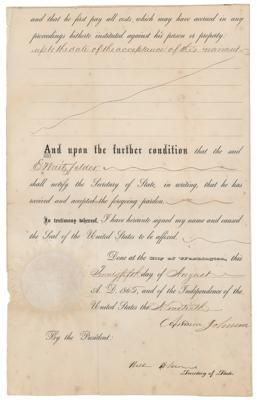 and that he first pay all costs, which may have accrued in any
proceedings hitherto instituted against his person or property:
up to the date of the acceptance of this warrant.
And upon the further condition that the said
E Waitzfelder
shall notify the Secretary of State, in writing, that he has
received and accepted the foregoing pardon.
In testimony whereof, I have hereunto signed my name and caused
the Seal of the United States to be affixed.
Done at the City of Washington, this
day of August
A. D. 1865, and of the Independence of the
United States the Ninetieth
Andrew Johnson
By the President:
Secretary of State.